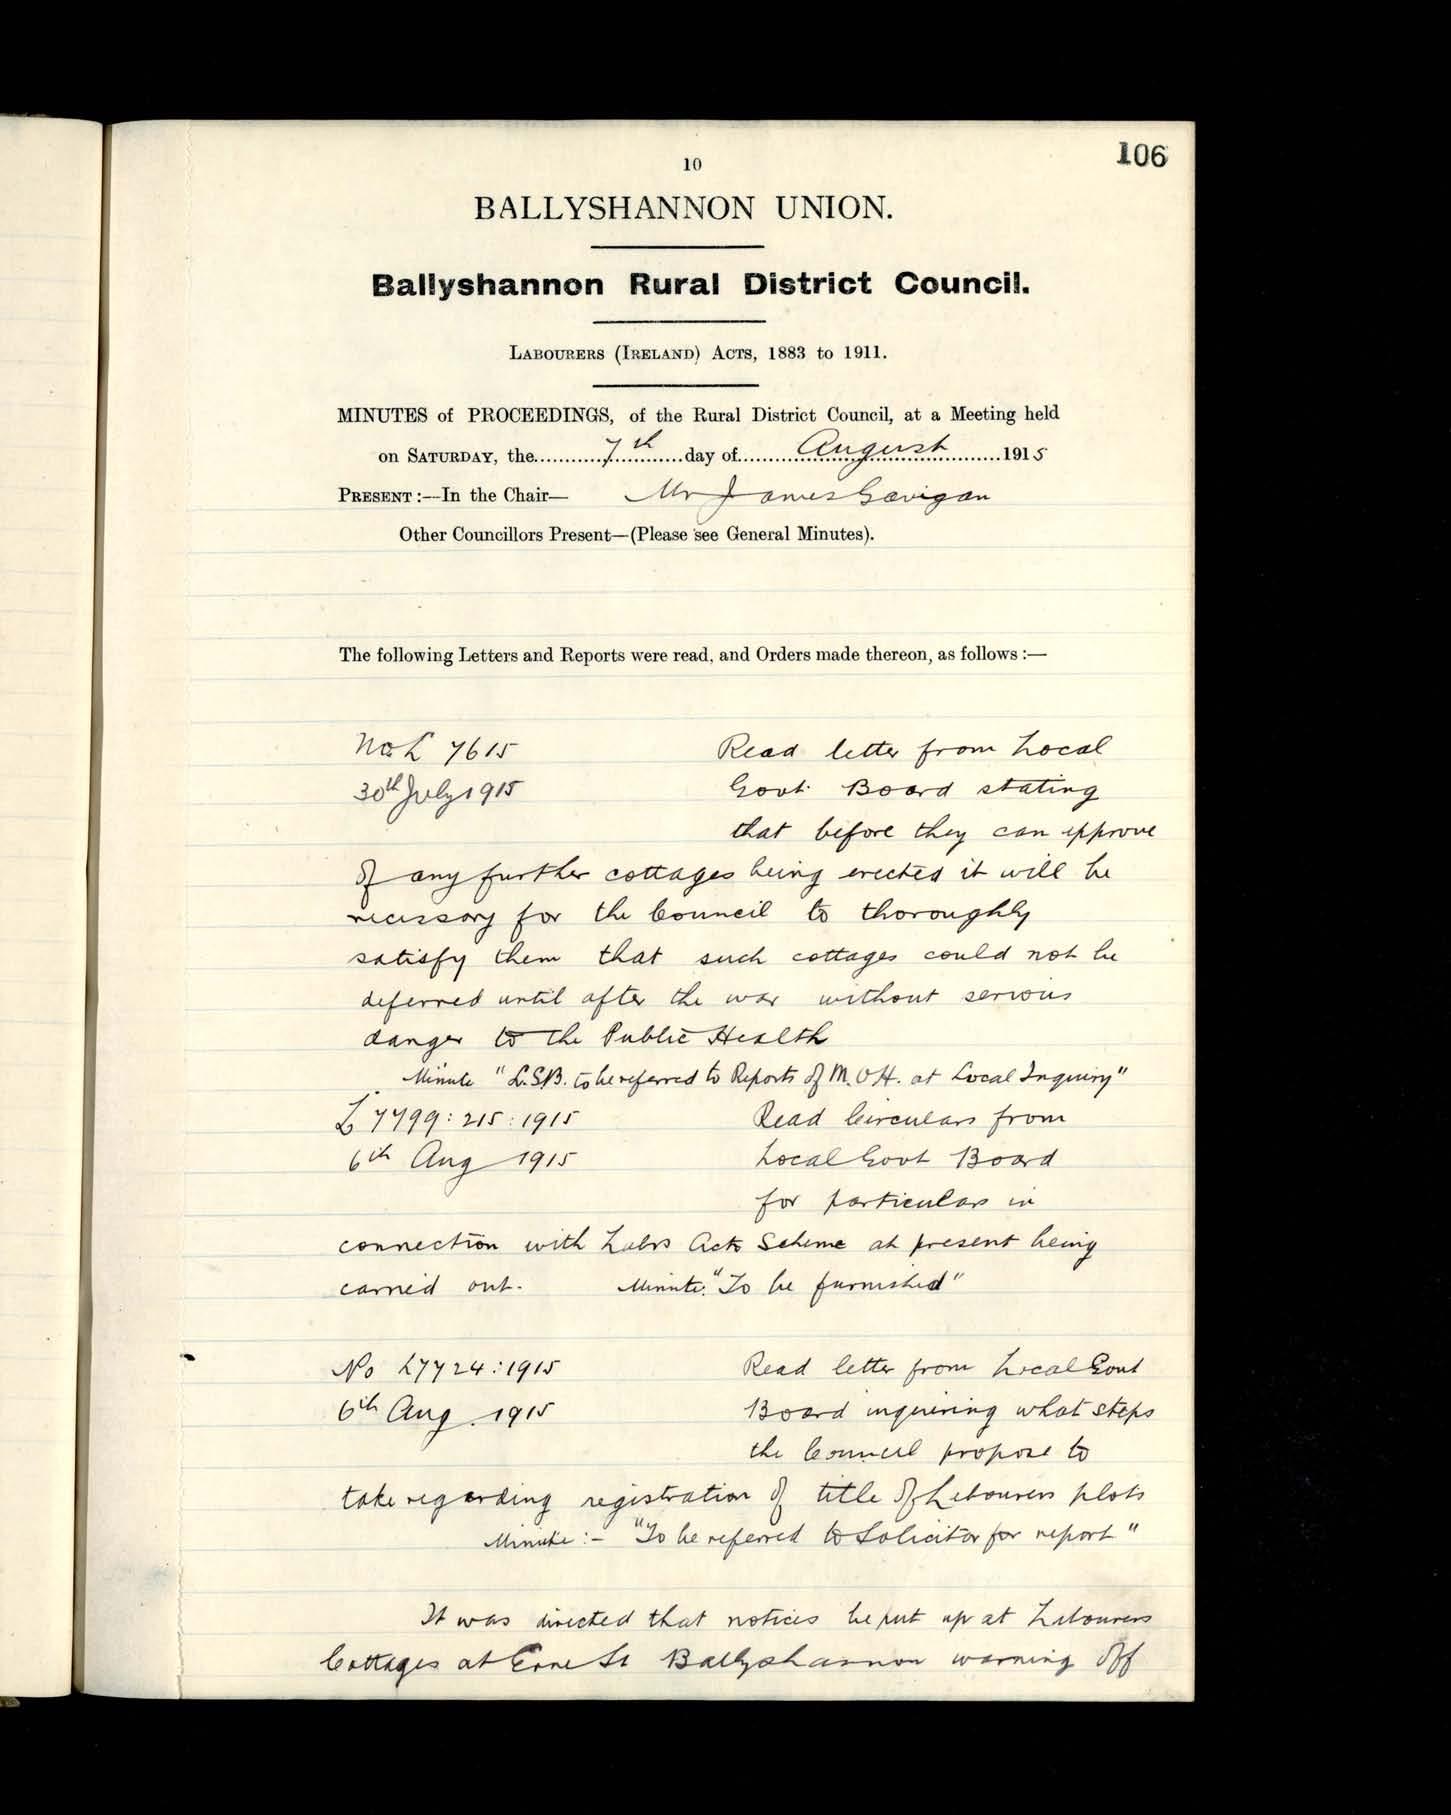 106
10
BALLYSHANNON UNION.
Ballyshannon Rural District Council.
LABOURERS (IRELAND) ACTS, 1883 to 1911.
MINUTES of PROCEEDINGS, of the Rural District Council, at a Meeting held
on SATURDAY, the 7th day of August 1915
PRESENT:—In the Chair— Mr James Gavigan
Other Councillors Present—(Please see General Minutes).
The following Letters and Reports were read, and Orders made thereon, as follows:—
No L 7615 Read letter from Local
30th July 1915 Govt. Board stating
that before they can approve
of any further cottages being erected it will be
necessary for the Council to thoroughly
satisfy them that such cottages could not be
deferred until after the war without serious
danger to the Public Health
Minute "L.G.B. to be referred to Reports of M.O.H. at Local Inquiry"
L 7799:215:1915 Read Circulars from
6th Aug 1915 Local Govt Board
for particulars in
connection with Labrs Acts Scheme at present being
carried out. Minute: "To be furnished"
No L7724:1915 Read letter from Local Govt
6th Aug. 1915 Board inquiring what steps
the Council propose to
take regarding registration of title of Labourers plots
Minute:- "To be referred to Solicitor for report"
It was directed that notices be put up at Labourers
Cottages at Erne St Ballyshannon warning off